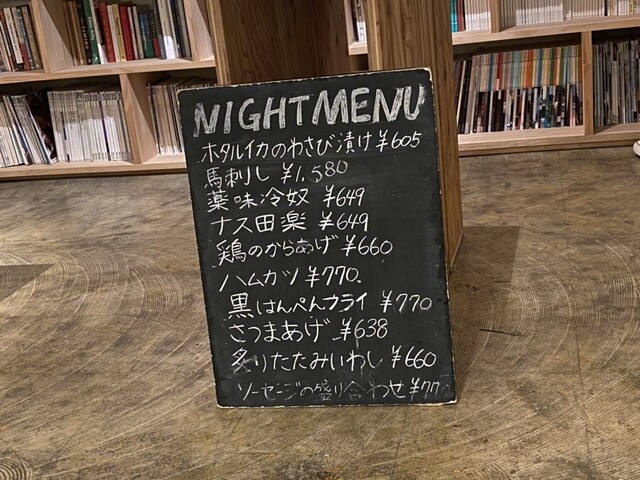 NIGHTMENU
ホタルイカのわさび漬け ¥605
馬刺し ¥1,580
薬味冷奴 ¥649
ナス田楽 ¥649
鶏のからあげ ¥660
ハムカツ ¥770.
黒はんぺんフライ ¥770
さつまあげ ¥638
炙りたたみいわし ¥660
ソーセージの盛り合わせ ¥77